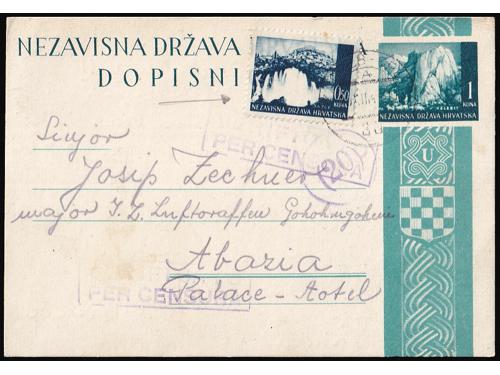 NEZAVISNA DRŽAVA
DOPISNI
0.50
KUNA
NEZAVISNA DRŽAVA HRVATSKA
1
KUNA
VELEBIT
NEZAVISNA DRŽAVA HRVATSKA
PER CENSURA
(20)
U
Sinjor
Josip Zechner
major I. Z. Luftwaffen
Abazia
PER CENSURA
Palace-Hotel